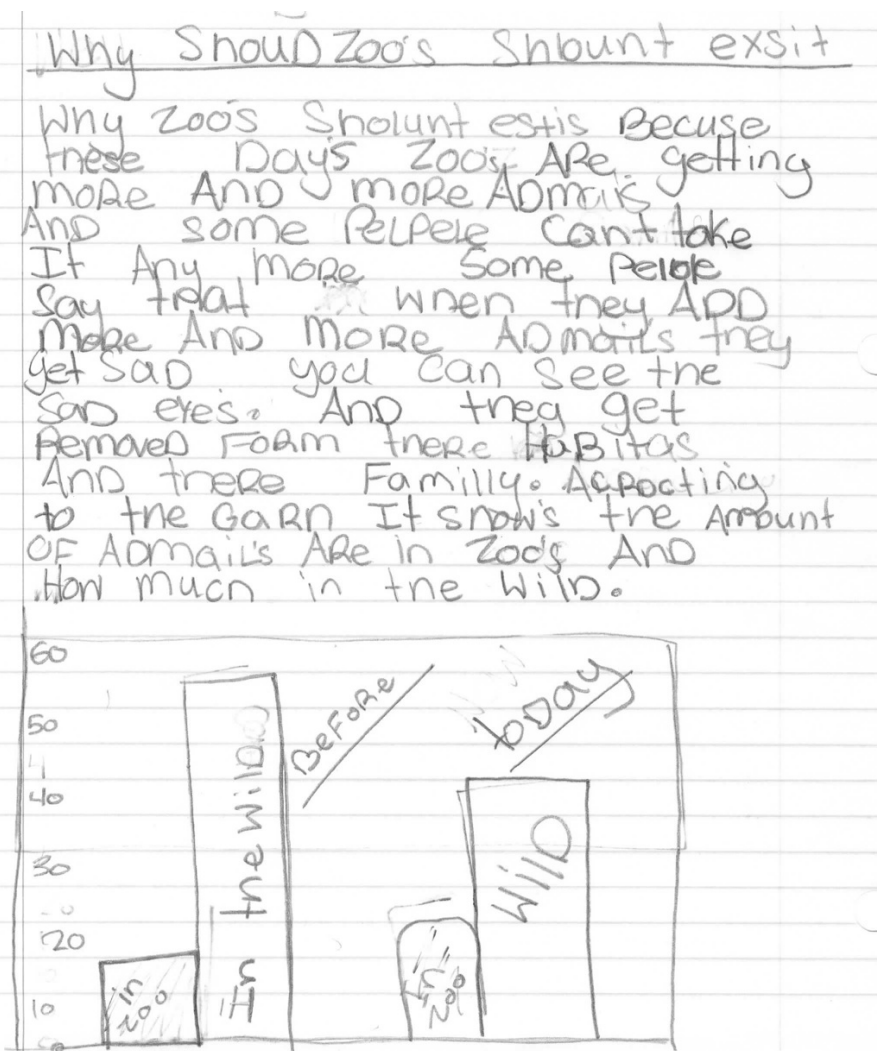 Why ShouD Zoo's Shount exsit
Why Zoo's Sholunt estis Becuse
these Day's Zoo's ARe getting
moRe AnD moRe ADmails
AnD some Pelpele can't take
It Any more Some Pelole
Say that when they ADD
more AnD more ADmail's they
get SaD you can See the
SaD eye's. AnD they get
RemoveD FoRm theRe HaBitas
AnD theRe Familly. Acrocting
to the GaRn It show's the Amount
OF ADmail's ARe in Zoo's AnD
How much in the WilD.
60
50
40
30
20
10
0
in zoo
In the WilD
BeFoRe
toDay
In Zoo
WilD